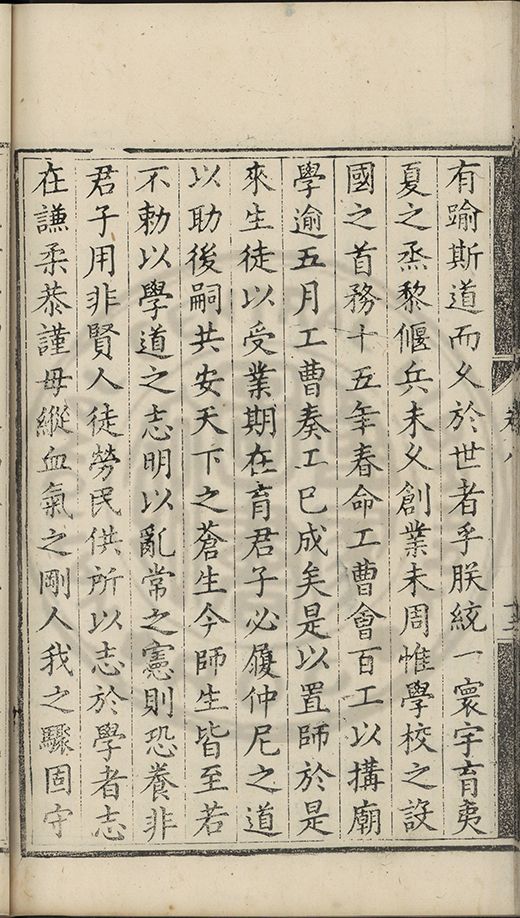 有踰斯道而乂於世者乎朕統一寰宇育夷
夏之烝黎偃兵未乂創業未周惟學校之設
國之首務十五年春命工曹會百工以搆廟
學逾五月工曹奏工已成矣是以置師於是
來生徒以受業期在育君子必履仲尼之道
以助後嗣共安天下之蒼生今師生皆至若
不勅以學道之志明以亂常之憲則恐養非
君子用非賢人徒勞民供所以志於學者志
在謙柔恭謹毋縱血氣之剛人我之驟固守